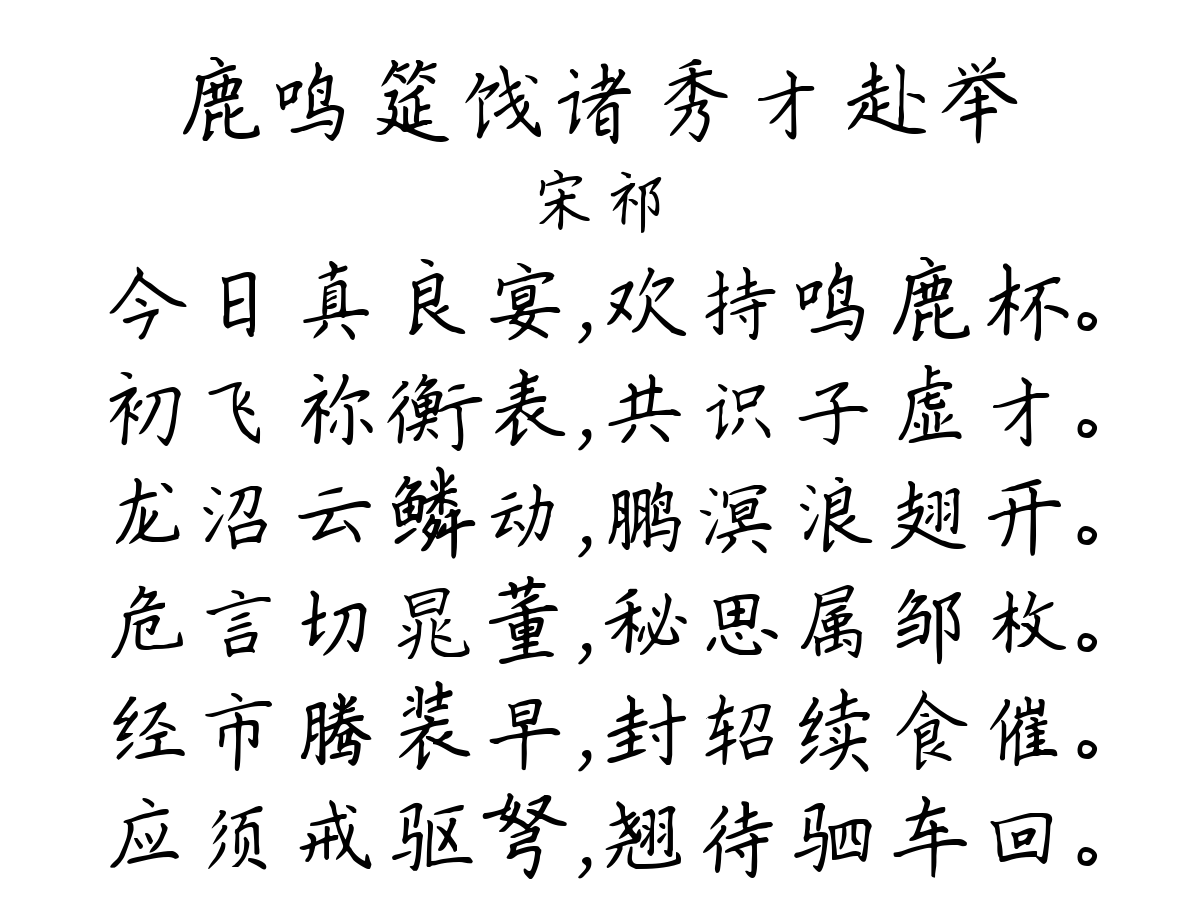 鹿鸣筵饯诸秀才赴举
宋祁
今日真良宴,欢持鸣鹿杯。
初飞祢衡表,共识子虚才。
龙沼云鳞动,鹏溟浪翅开。
危言切晁董,秘思属邹枚。
经市腾装早,封轺续食催。
应须戒驱弩,翘待驷车回。